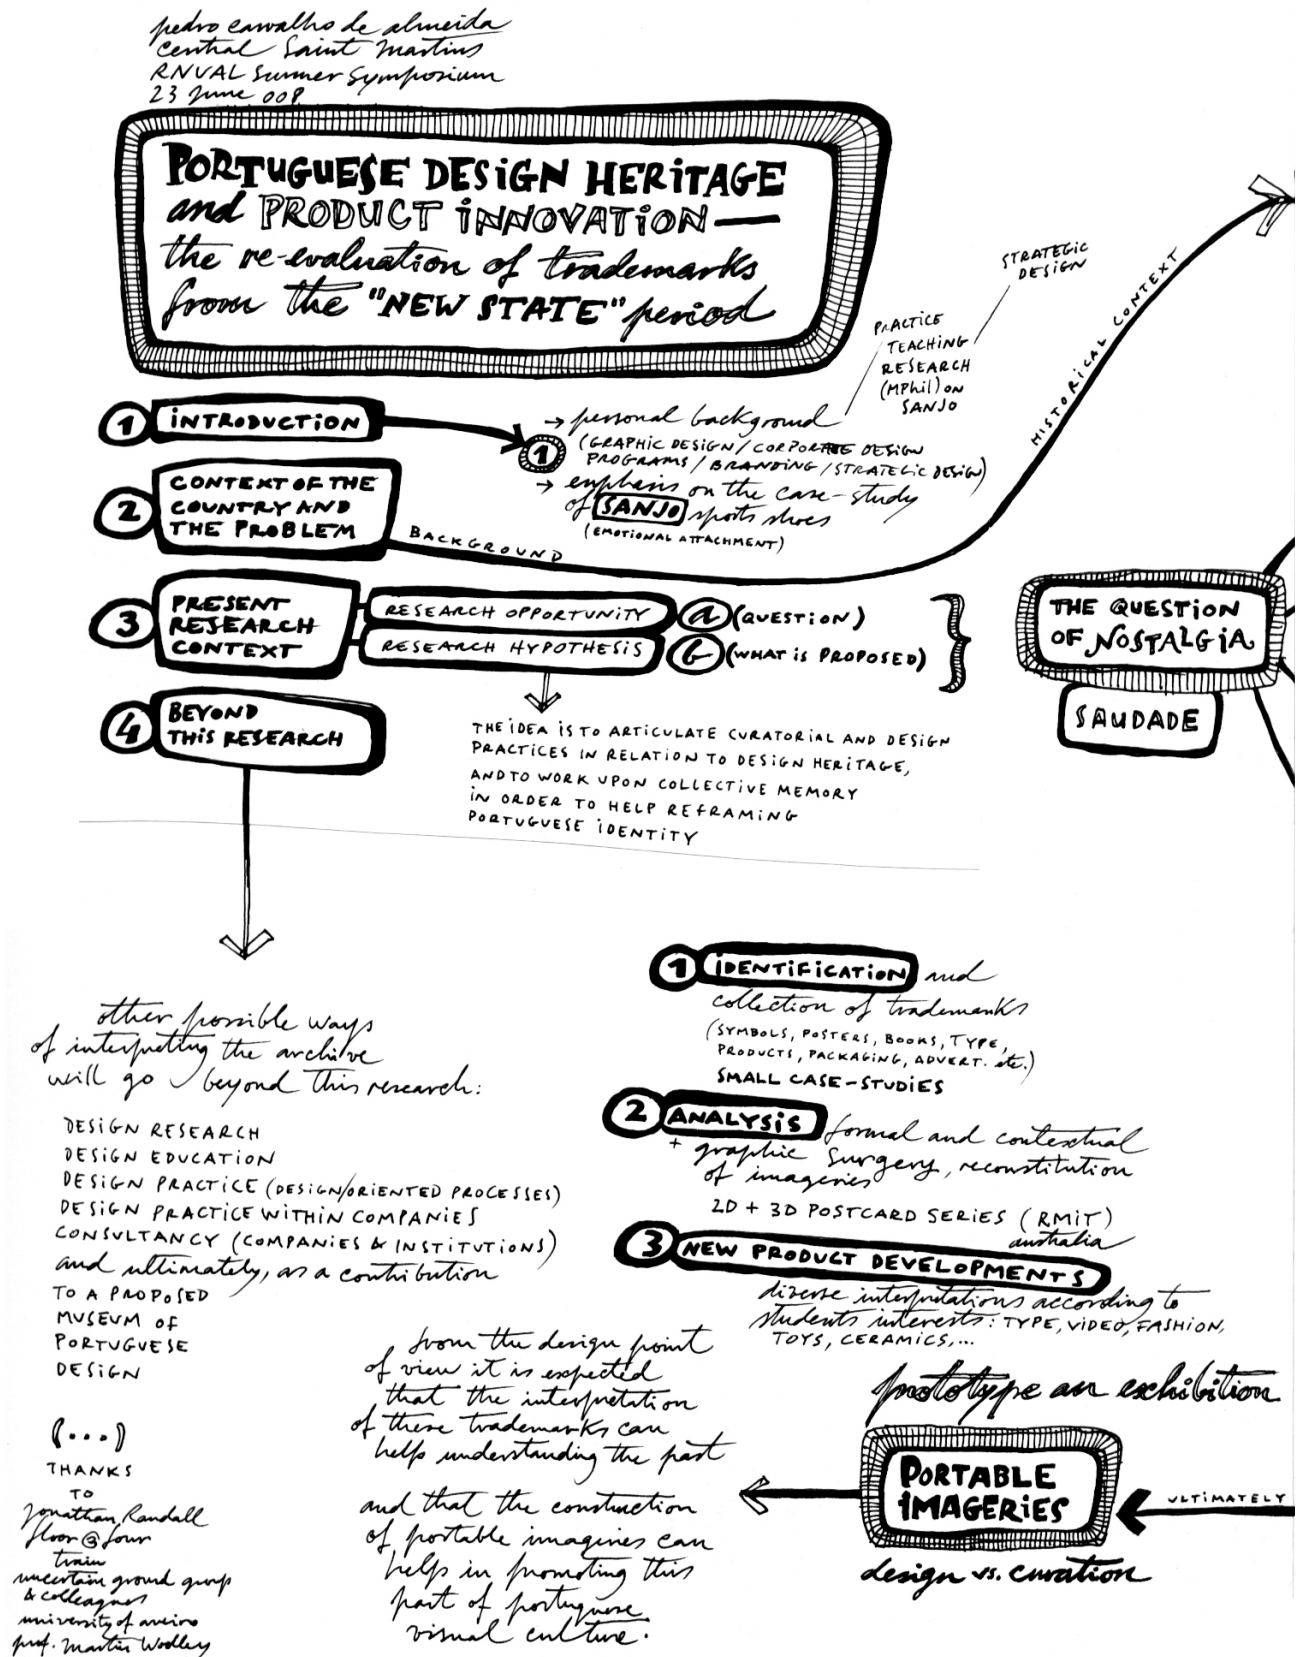 pedro carvalho de almeida
central Saint Martins
RNUAL Summer Symposium
23 June 008
PORTUGUESE DESIGN HERITAGE
and PRODUCT INNOVATION—
the re-evaluation of trademarks
from the "NEW STATE" period
STRATEGIC
DESIGN
PRACTICE
TEACHING
RESEARCH
(MPhil) ON
SANJO
HISTORICAL CONTEXT
1 INTRODUCTION
→ personal background
(GRAPHIC DESIGN / CORPORATE DESIGN
PROGRAMS / BRANDING / STRATEGIC DESIGN)
1
→ emphasis on the case-study
of SANJO sports shoes
(EMOTIONAL ATTACHMENT)
2 CONTEXT OF THE
COUNTRY AND
THE PROBLEM
BACKGROUND
3 PRESENT
RESEARCH
CONTEXT
RESEARCH OPPORTUNITY a (QUESTION)
RESEARCH HYPOTHESIS b (WHAT IS PROPOSED)
THE QUESTION
OF NOSTALGIA
SAUDADE
4 BEYOND
THIS RESEARCH
THE IDEA IS TO ARTICULATE CURATORIAL AND DESIGN
PRACTICES IN RELATION TO DESIGN HERITAGE,
AND TO WORK UPON COLLECTIVE MEMORY
IN ORDER TO HELP REFRAMING
PORTUGUESE IDENTITY
other possible ways
of interpreting the archive
will go beyond this research:
DESIGN RESEARCH
DESIGN EDUCATION
DESIGN PRACTICE (DESIGN/ORIENTED PROCESSES)
DESIGN PRACTICE WITHIN COMPANIES
CONSULTANCY (COMPANIES & INSTITUTIONS)
and ultimately, as a contribution
TO A PROPOSED
MUSEUM OF
PORTUGUESE
DESIGN
(...)
THANKS
TO
Jonathan Randall
floor @ four
train
uncertain ground group
& colleagues
university of aveiro
prof. Martin Wodley
1 IDENTIFICATION and
collection of trademarks
(SYMBOLS, POSTERS, BOOKS, TYPE,
PRODUCTS, PACKAGING, ADVERT. etc.)
SMALL CASE-STUDIES
2 ANALYSIS formal and contextual
+ graphic surgery, reconstitution
of imageries
2D + 3D POSTCARD SERIES (RMIT)
australia
3 NEW PRODUCT DEVELOPMENTS
diverse interpretations according to
students interests: TYPE, VIDEO, FASHION,
TOYS, CERAMICS,...
from the design point
of view it is expected
that the interpretation
of these trademarks can
help understanding the past
and that the construction
of portable imagines can
help in promoting this
part of portuguese
visual culture.
prototype an exhibition
PORTABLE
IMAGERIES
ULTIMATELY
design vs. curation